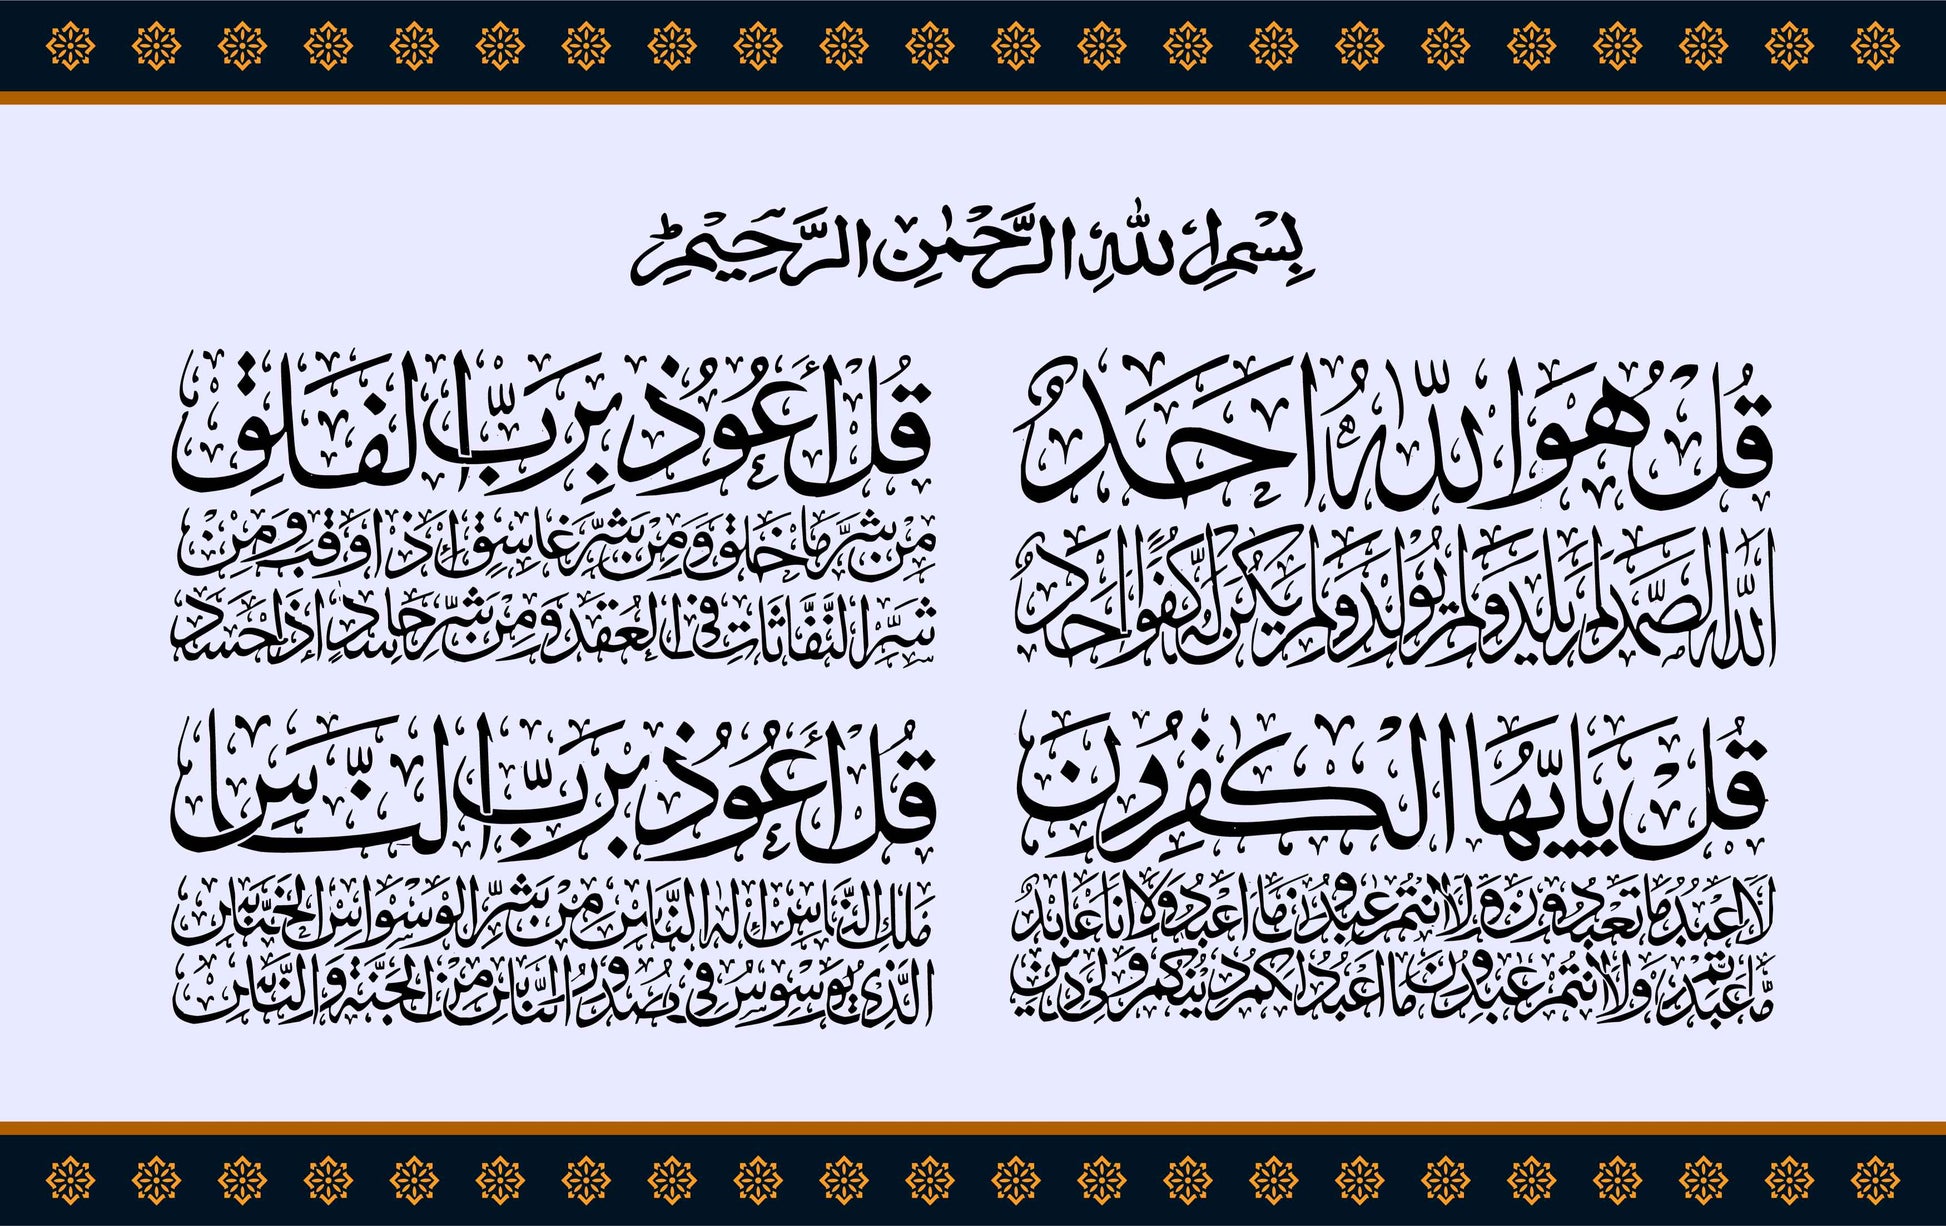 بِسْمِ اللهِ الرَّحْمٰنِ الرَّحِيْمِ
قُلْ هُوَ اللّٰهُ اَحَدٌ
اَللّٰهُ الصَّمَدُ لَمْ يَلِدْ وَلَمْ يُوْلَدْ وَلَمْ يَكُنْ لَّهٗ كُفُوًا اَحَدٌ
قُلْ اَعُوْذُ بِرَبِّ الْفَلَقِ
مِنْ شَرِّ مَا خَلَقَ وَمِنْ شَرِّ غَاسِقٍ اِذَا وَقَبَ وَمِنْ
شَرِّ النَّفّٰثٰتِ فِی الْعُقَدِ وَمِنْ شَرِّ حَاسِدٍ اِذَا حَسَدَ
قُلْ يٰاَيُّهَا الْكٰفِرُوْنَ
لَا اَعْبُدُ مَا تَعْبُدُوْنَ وَلَا اَنْتُمْ عٰبِدُوْنَ مَا اَعْبُدُ وَلَا اَنَا عَابِدٌ
مَّا عَبَدْتُّمْ وَلَا اَنْتُمْ عٰبِدُوْنَ مَا اَعْبُدُ لَكُمْ دِيْنُكُمْ وَلِیَ دِيْنِ
قُلْ اَعُوْذُ بِرَبِّ النَّاسِ
مَلِكِ النَّاسِ اِلٰهِ النَّاسِ مِنْ شَرِّ الْوَسْوَاسِ الْخَنَّاسِ
الَّذِیْ يُوَسْوِسُ فِیْ صُدُوْرِ النَّاسِ مِنَ الْجِنَّةِ وَالنَّاسِ